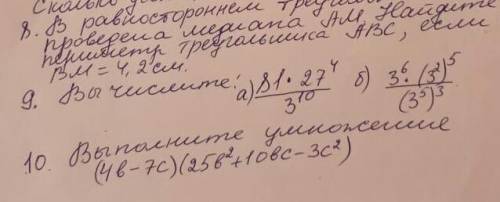 Сколько
8. В равностороннем треугол
проведена медиана АМ. Найдите
периметр треугольника АВС, если
ВМ = 4,2 см.
9. Вычислите: а) 81 · 27⁴ / 3¹⁰ б) 3⁶ · (3²)⁵ / (3⁵)³
10. Выполните умножение
(4в - 7с)(25в² + 10вс - 3с²)